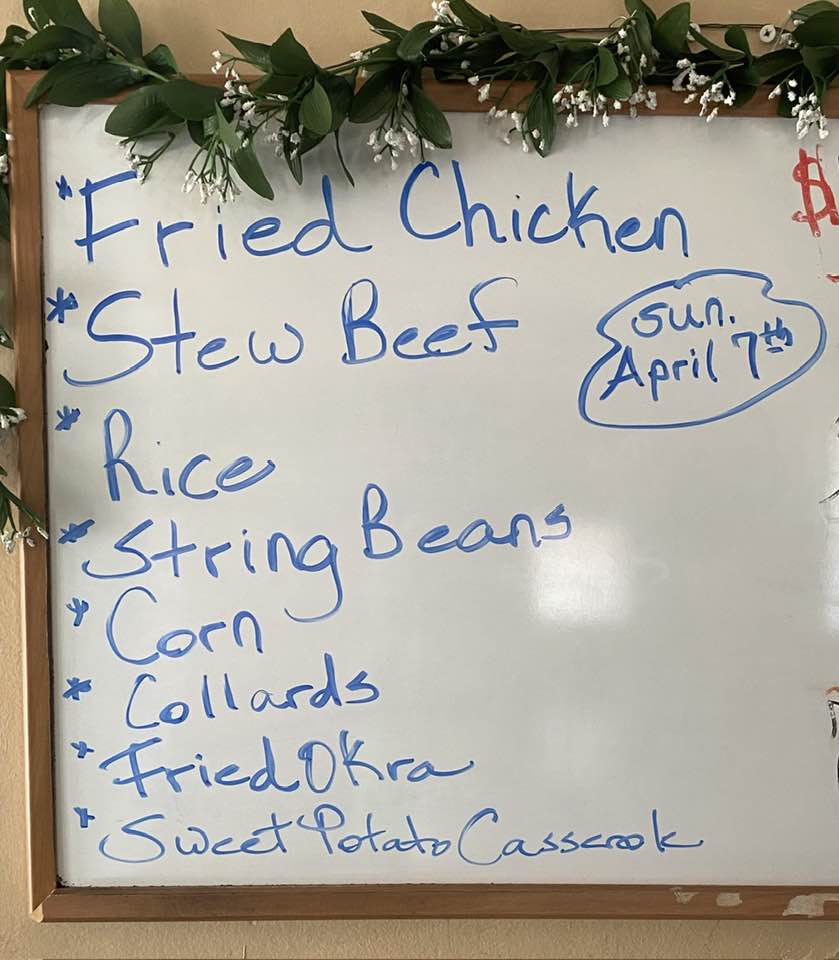 * Fried Chicken
* Stew Beef
Sun.
April 7th
* Rice
* String Beans
* Corn
* Collards
* Fried Okra
* Sweet Potato Casserole
$